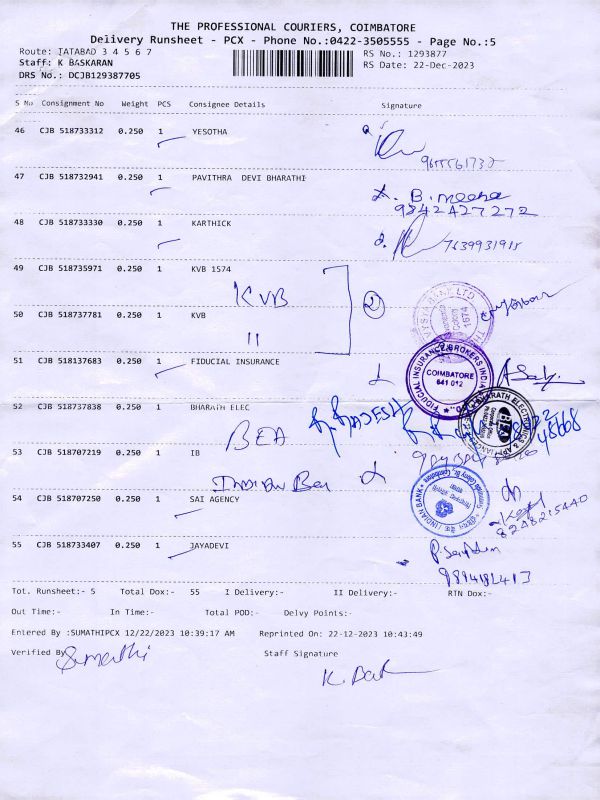 THE PROFESSIONAL COURIERS, COIMBATORE
Delivery Runsheet - PCX - Phone No.:0422-3505555 - Page No.:5
Route: TATABAD 3 4 5 6 7 RS No.: 1293877
Staff: K BASKARAN RS Date: 22-Dec-2023
DRS No.: DCJB129387705
S No Consignment No Weight PCS Consignee Details Signature
46 CJB 518733312 0.250 1 YESOTHA
47 CJB 518732941 0.250 1 PAVITHRA DEVI BHARATHI
B. meena
9842427272
48 CJB 518733330 0.250 1 KARTHICK
7639931915
49 CJB 518735971 0.250 1 KVB 1574
KVB 2
50 CJB 518737781 0.250 1 KVB
"
51 CJB 518137683 0.250 1 FIDUCIAL INSURANCE
FIDUCIAL INSURANCE BROKERS INDIA
COIMBATORE
641 012
52 CJB 518737838 0.250 1 BHARATH ELEC
BEA RAJESH
BHARATH ELECTRONICS & APPLIANCES
53 CJB 518707219 0.250 1 IB
Indian Ban
INDIAN BANK
54 CJB 518707250 0.250 1 SAI AGENCY
8248215440
55 CJB 518733407 0.250 1 JAYADEVI
Tot. Runsheet:- 5 Total Dox:- 55 I Delivery:- II Delivery:- RTN Dox:-
Out Time:- In Time:- Total POD:- Delvy Points:-
Entered By :SUMATHIPCX 12/22/2023 10:39:17 AM Reprinted On: 22-12-2023 10:43:49
Verified By Sumathi Staff Signature